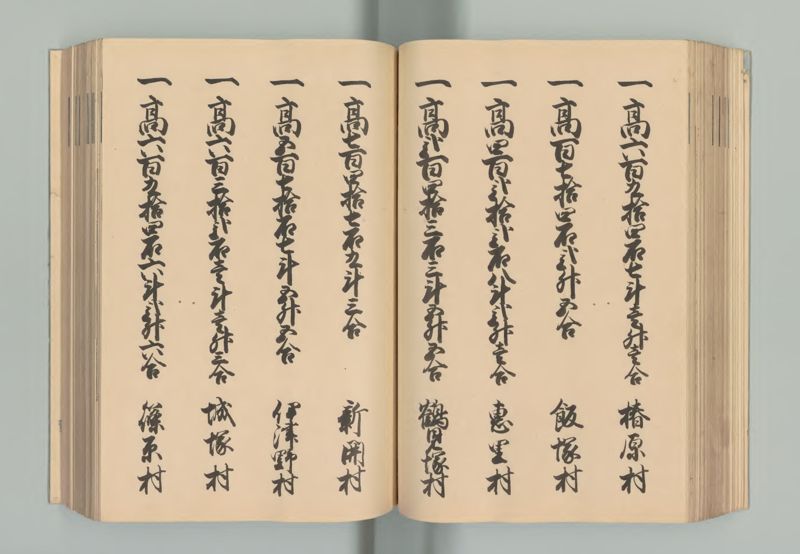 一高六百九拾四石七斗壱升壱合 椿原村
一高百七拾四石弐升五合 飯塚村
一高四百弐拾弐石八斗弐升壱合 恵里村
一高弐百四拾三石三斗五升五合 鶴見塚村
一高七百四拾七石九斗三合 新開村
一高五百七拾石七斗五升五合 伊津野村
一高六百三拾弐石壱斗壱升三合 城塚村
一高六百九拾四石六斗弐升六合 篠原村